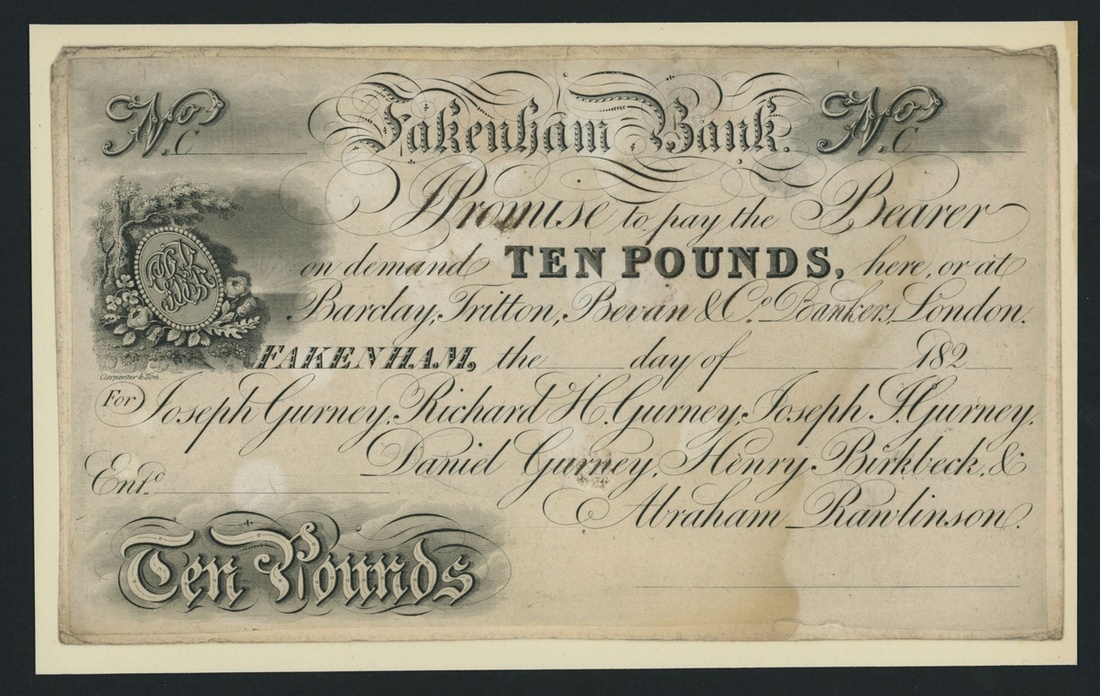 No. C Fakenham Bank. No. C
I Promise to pay the Bearer
on demand TEN POUNDS, here, or at
Barclay, Tritton, Bevan & Co. Bankers, London.
FAKENHAM, the day of 182
Carpenter & Son
For Joseph Gurney, Richard H. Gurney, Joseph J. Gurney,
Daniel Gurney, Henry Birkbeck, &
Entd.
Abraham Rawlinson.
Ten Pounds